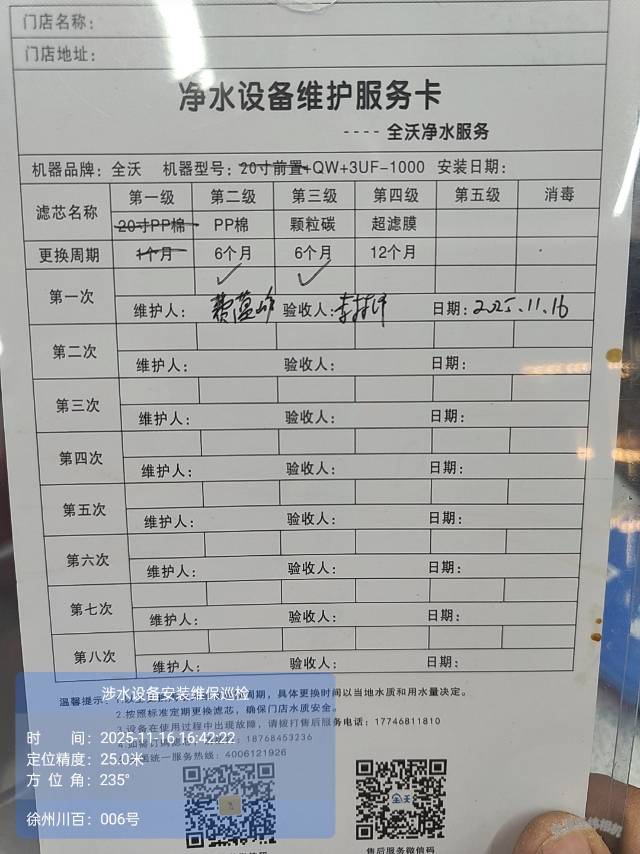 门店名称：
门店地址：
净水设备维护服务卡
---- 全沃净水服务
机器品牌：全沃 机器型号：20寸前置+QW+3UF-1000 安装日期：
滤芯名称 第一级 第二级 第三级 第四级 第五级 消毒
20寸PP棉 PP棉 颗粒碳 超滤膜
更换周期 1个月 6个月 6个月 12个月
第一次 ✓ ✓
维护人： 验收人： 日期：2025.11.16
第二次
维护人： 验收人： 日期：
第三次
维护人： 验收人： 日期：
第四次
维护人： 验收人： 日期：
第五次
维护人： 验收人： 日期：
第六次
维护人： 验收人： 日期：
第七次
维护人： 验收人： 日期：
第八次
维护人： 验收人： 日期：
温馨提示：周期，具体更换时间以当地水质和用水量决定。
2.按照标准定期更换滤芯，确保门店水质安全。
3.设备在使用过程中出现故障，请拨打售后服务电话：17746811810
18768453236
国统一服务热线：4006121926
涉水设备安装维保巡检
时 间：2025-11-16 16:42:22
定位精度：25.0米
方 位 角：235°
徐州川百：006号
全沃
售后服务微信码